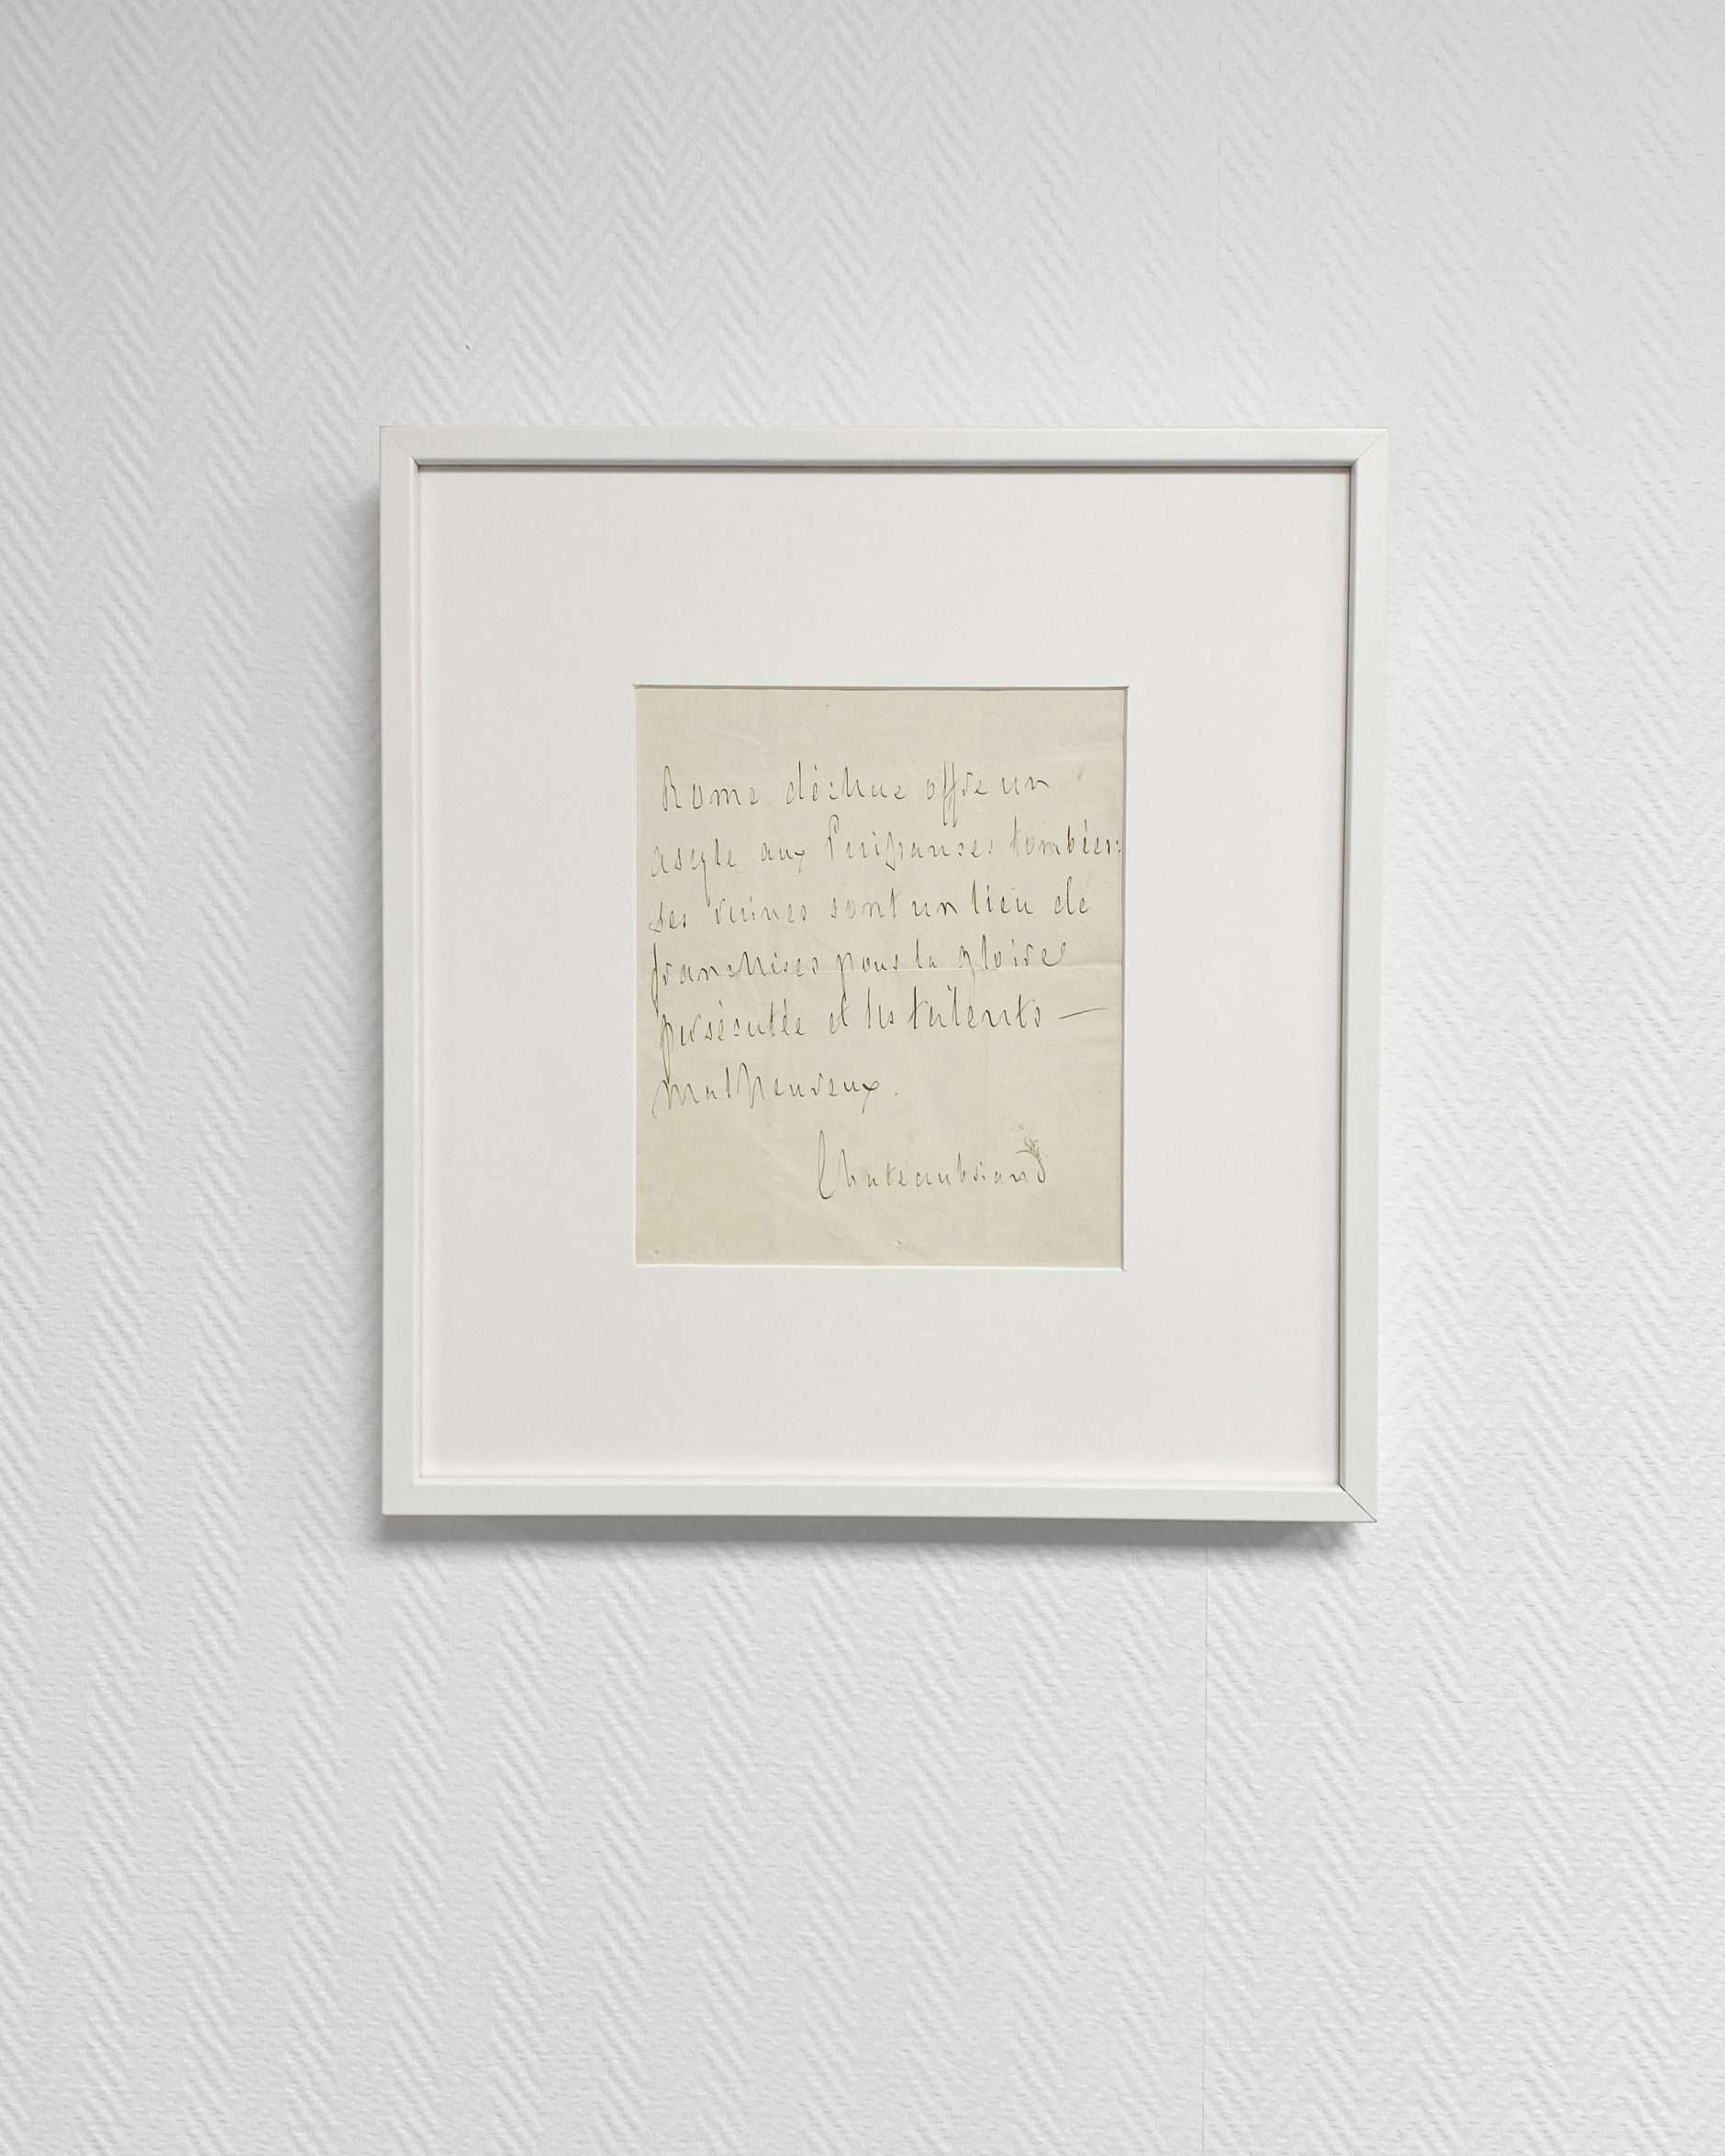 Rome déchue offre un
asyle aux Puissances tombées:
ses ruines sont un lieu de
franchises pour la gloire
persécutée et les talents —
malheureux.
Chateaubriand